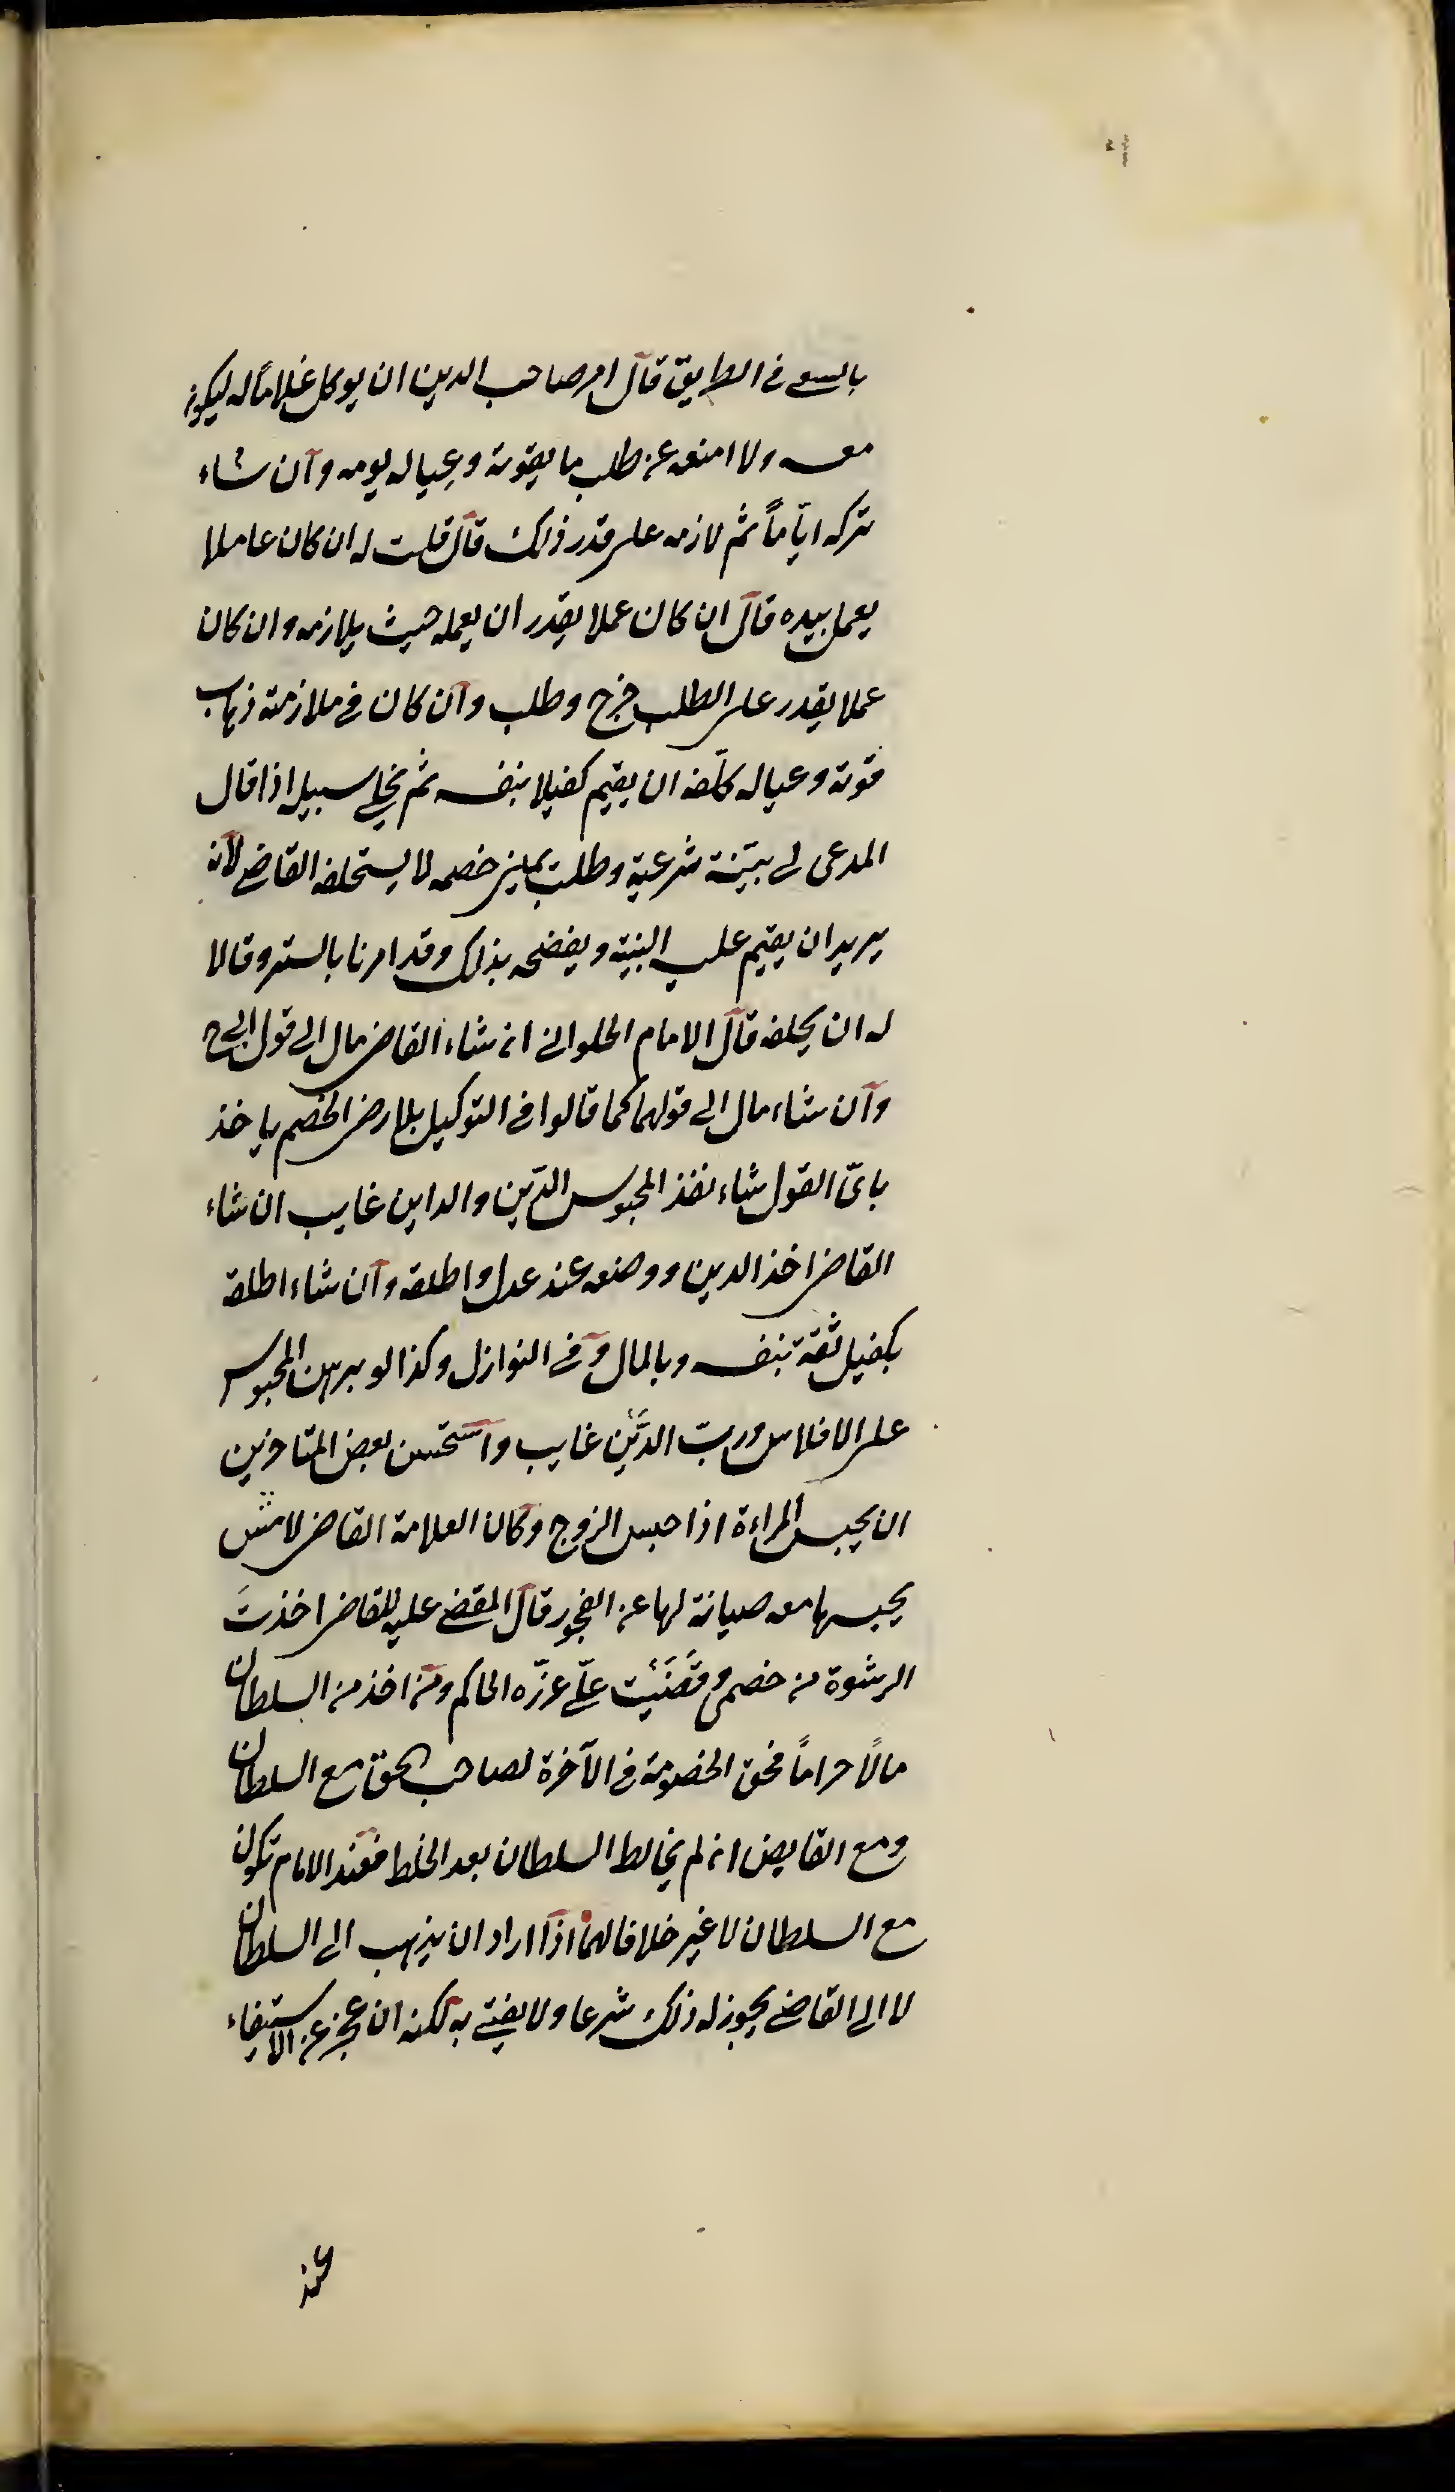 بالسعى في الطريق قال امر صاحب الدين ان يوكل غلاماً له ليكون
معه ولا امنعه عن طلب ما يقوته وعياله يومه وان شاء
تركه اياماً ثم لازمه على قدر ذلك قال قلت له ان كان عاملا
يعمل بيده قال ان كان عملا يقدر ان يعمله حيث يلازمه وان كان
عملا يقدر على الطلب خرج وطلب وان كان في ملازمته ذهاب
قوته وعياله كلّفه ان يقيم كفيلا بنفسه ثم يخلى سبيله اذا قال
المدعى لى بيّنة شرعية وطلب يمين خصمه لا يستحلفه القاضي لانه
يريد ان يقيم عليه البنية ويفضحه بذلك وقد امرنا بالستر وقالا
له ان يحلفه قال الامام الحلوانى ان شاء القاضى مال الى قول ابى ح
وان شاء مال الى قولهما كما قالوا في التوكيل بلا رضى الخصم ياخذ
باىّ القول شاء نفذ المحبوس الدّين والداين غايب ان شاء
القاضى اخذ الدين ووضعه عند عدل واطلقه وان شاء اطلقه
بكفيل ثقة بنفسه وبالمال وفى النوازل وكذا لو برهن المحبوس
على الافلاس وربّ الدَّين غايب واستحسن بعض المتاخرين
ان يحبس المراءة اذا حبس الزوج وكان العلامة القاضى لامش
يحبسها معه صيانة لها عن الفجور قال المقضى عليه للقاضى اخذتَ
الرشوة من خصمى وقَضَيْت علىّ عزّره الحاكم ومن اخذ من السلطان
مالاً حراماً فحق الخصومة في الآخرة لصاحب الحق مع السلطان
ومع القابض ان لم يخالط السلطان بعد الخلط فعند الامام تكون
مع السلطان لا غير خلافا لهما اذا اراد ان يذهب الى السلطان
لا الى القاضى يجوز له ذلك شرعا ولا يفتى به لكنه ان عجز عن الاستيفاء
عند